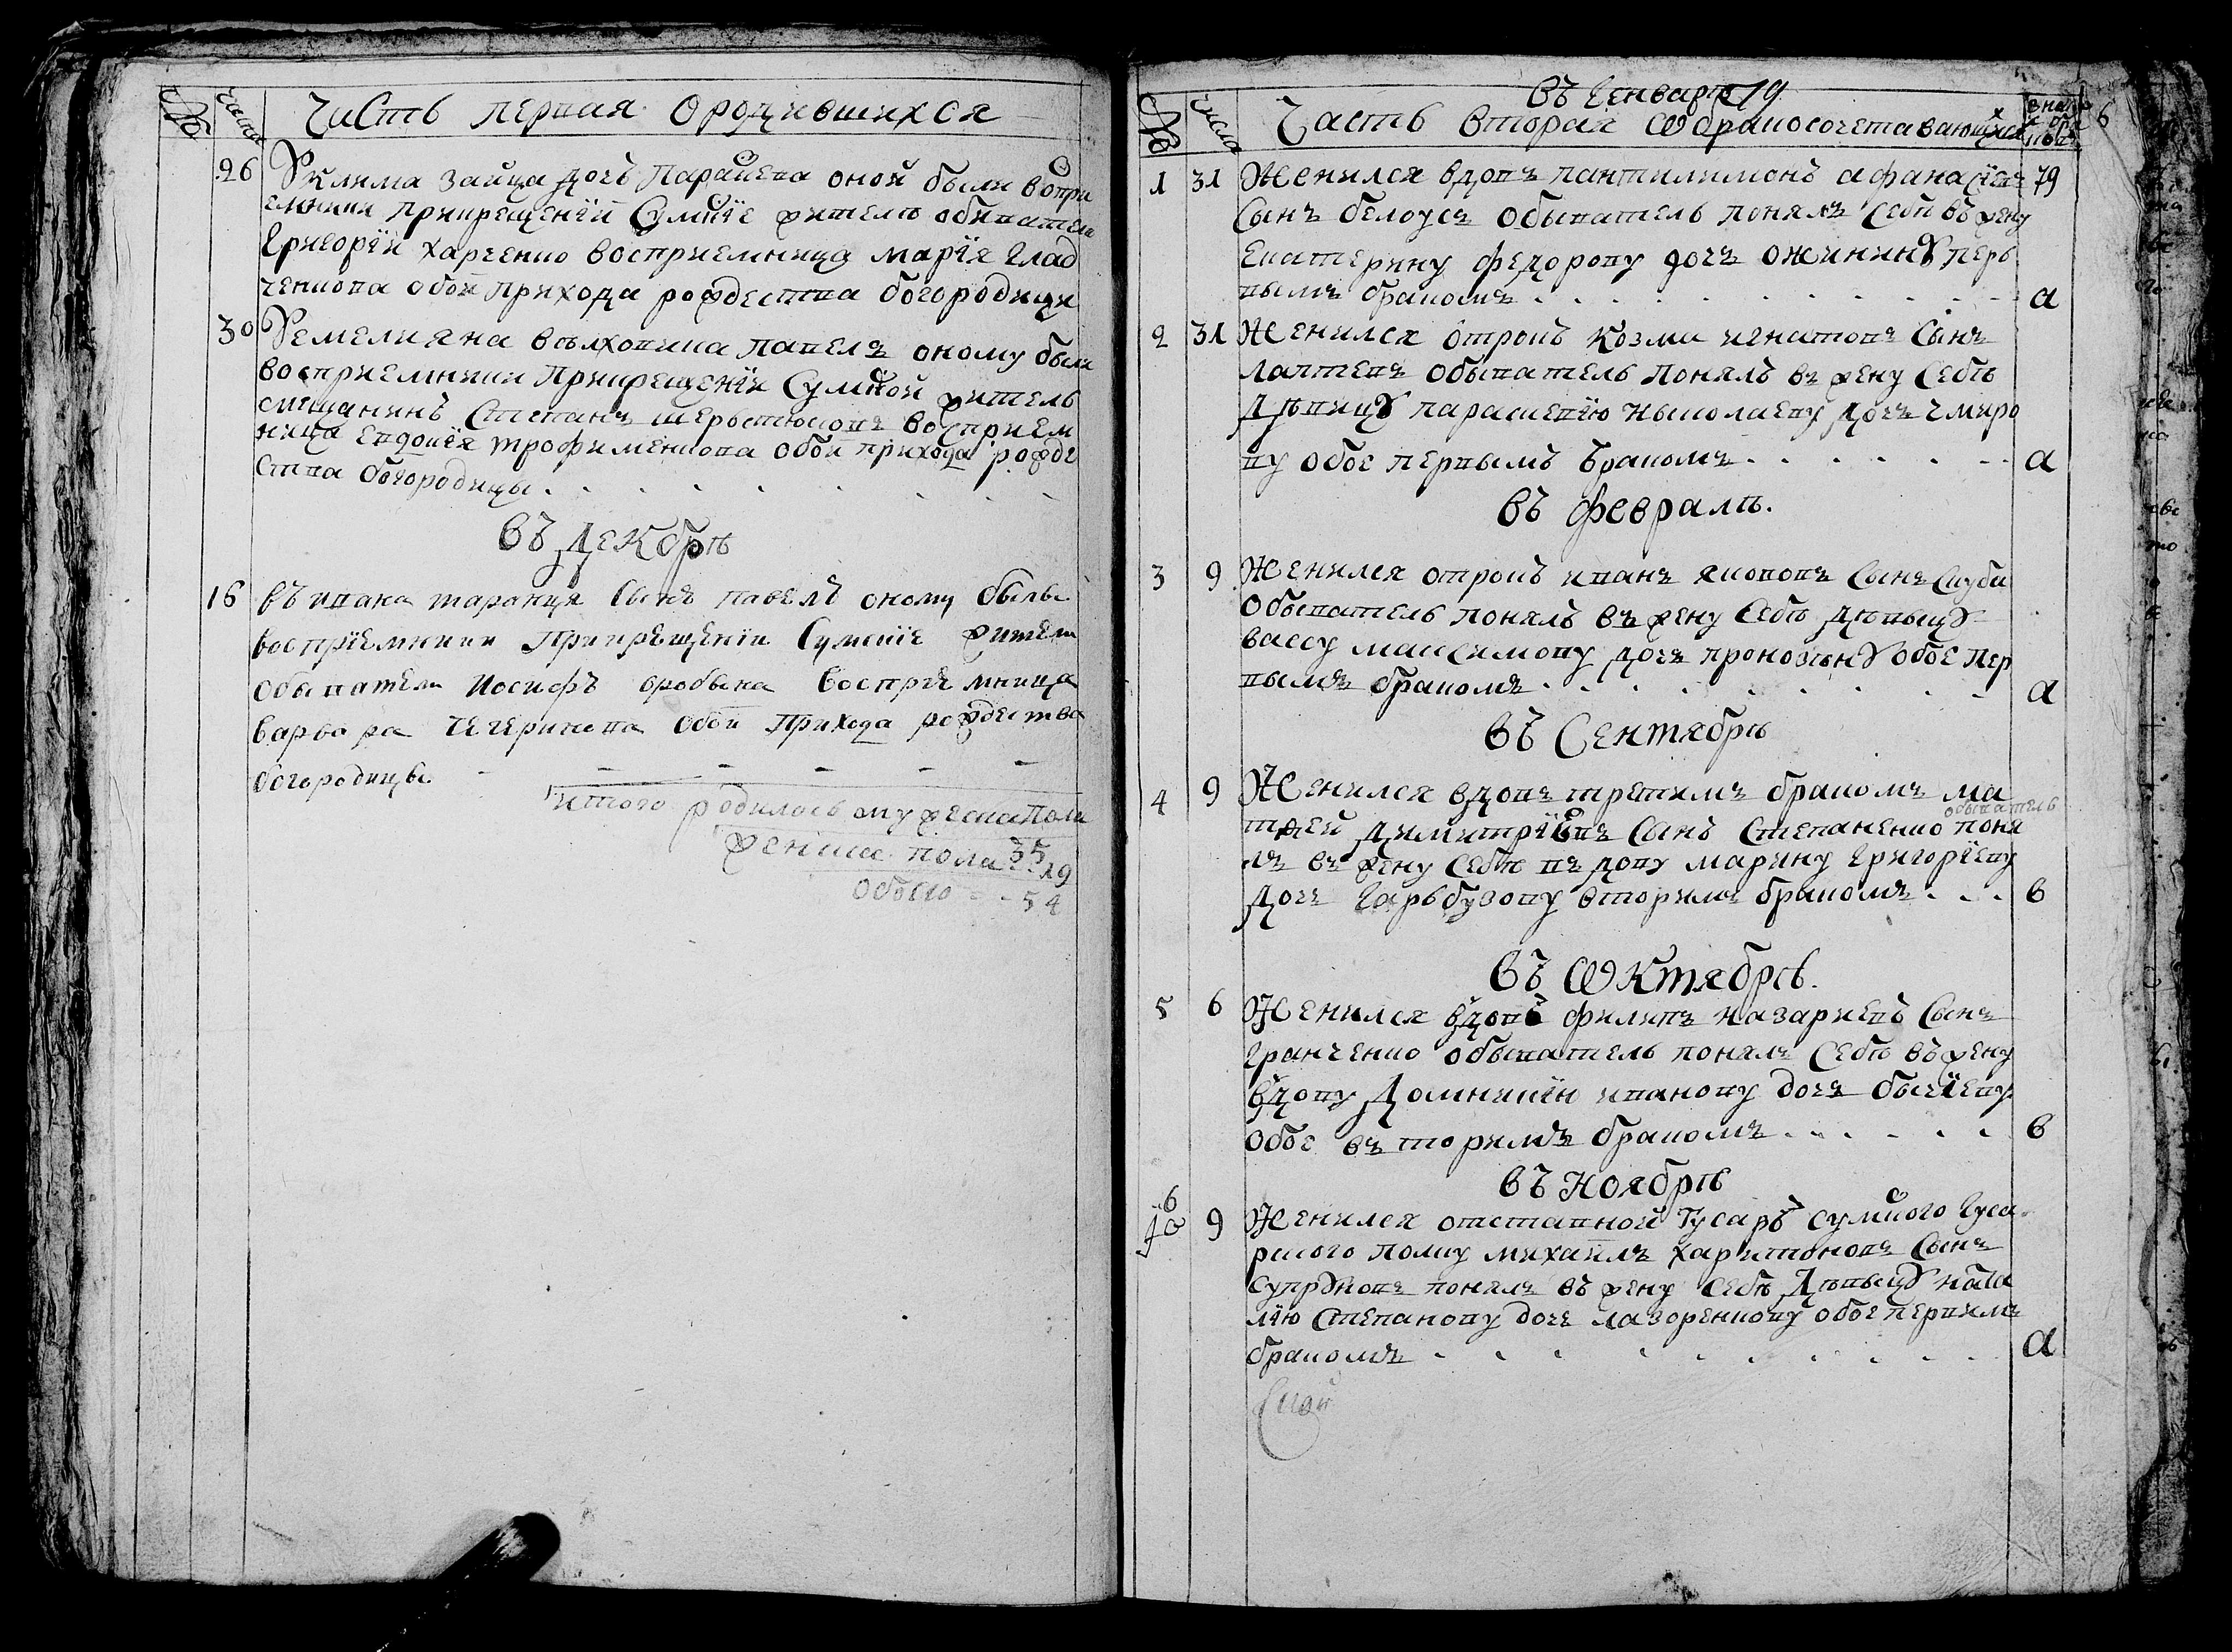 № числа Часть первая о родившихся
26 У клима зайца дочъ Параскева оной были воспри
емники Прикрещенїи Сумскїе жители обиватели
Григорїи харченко восприемница марїя глад
ченкова обои прихода рождества богородици
30 У емелияна волховина павелъ оному были
восприемники Прикрещенїи Сумской житель
смещанинъ Степанъ восприем
ница евдокїя трофименкова обои прихода рожде
ства богородицы
Въ Декабрѣ
16 въ ивана таранця Сынъ павелъ оному былы
воспрїемники Прикрещенїи Сумскїе жители
обыватели Иосифъ оробына воспрїемница
варвара чечеринова обои Прихода рождества
богородицы
итого родилось мужеска пола
35
женска пола 19
обоего 54
Въ Генварѣ 79
№ Число Часть вторая Ѡ бракосочетавающихся 6
1 31 Женился вдовъ пантилимонъ афанасїевъ 79
Сынъ белоусъ обыватель понялъ Себѣ въ жену
Екатерину федорову дочъ ожининꙋ перь
вымъ бракомъ а
2 31 Женился отрокъ козма игнатовъ Сынъ
лаптевъ обыватель понялъ въ жену Себѣ
Дѣвицꙋ параскевїю николаеву дочъ чмиро
ву обое первымъ бракомъ а
Въ февралѣ.
3 9 Женился отрокъ иванъ якововъ Сынъ Скуба
обыватель понялъ въ жену Себѣ дѣвыцꙋ
вассу максимову дочъ прокозинꙋ обое пер
вымъ бракомъ а
Въ Сентябрѣ
4 9 Женился вдовъ третимъ бракомъ ма
обыватель
твей Димитрїевъ Сынъ Степаненко поня
лъ въ жену Себѣ въ дову марину григорїеву
дочъ гарьбузову вторимъ бракомъ в
Въ Ѡктябрѣ.
5 6 Женился вдовъ филипъ назариевъ Сынъ
гранченко обыватель понялъ Себѣ въ жену
вдову Домникїю иванову дочъ бычїеву
обое въторимъ бракомъ в
Въ Ноябрѣ
6 9 Женился отставной Гусаръ сумского гуса
рского полку михаилъ харитоновъ Сынъ
супрꙋновъ понялъ въ жену Себѣ Дѣвыцꙋ ната
лїю Степанову дочъ лазоренкову обое первимъ
бракомъ а